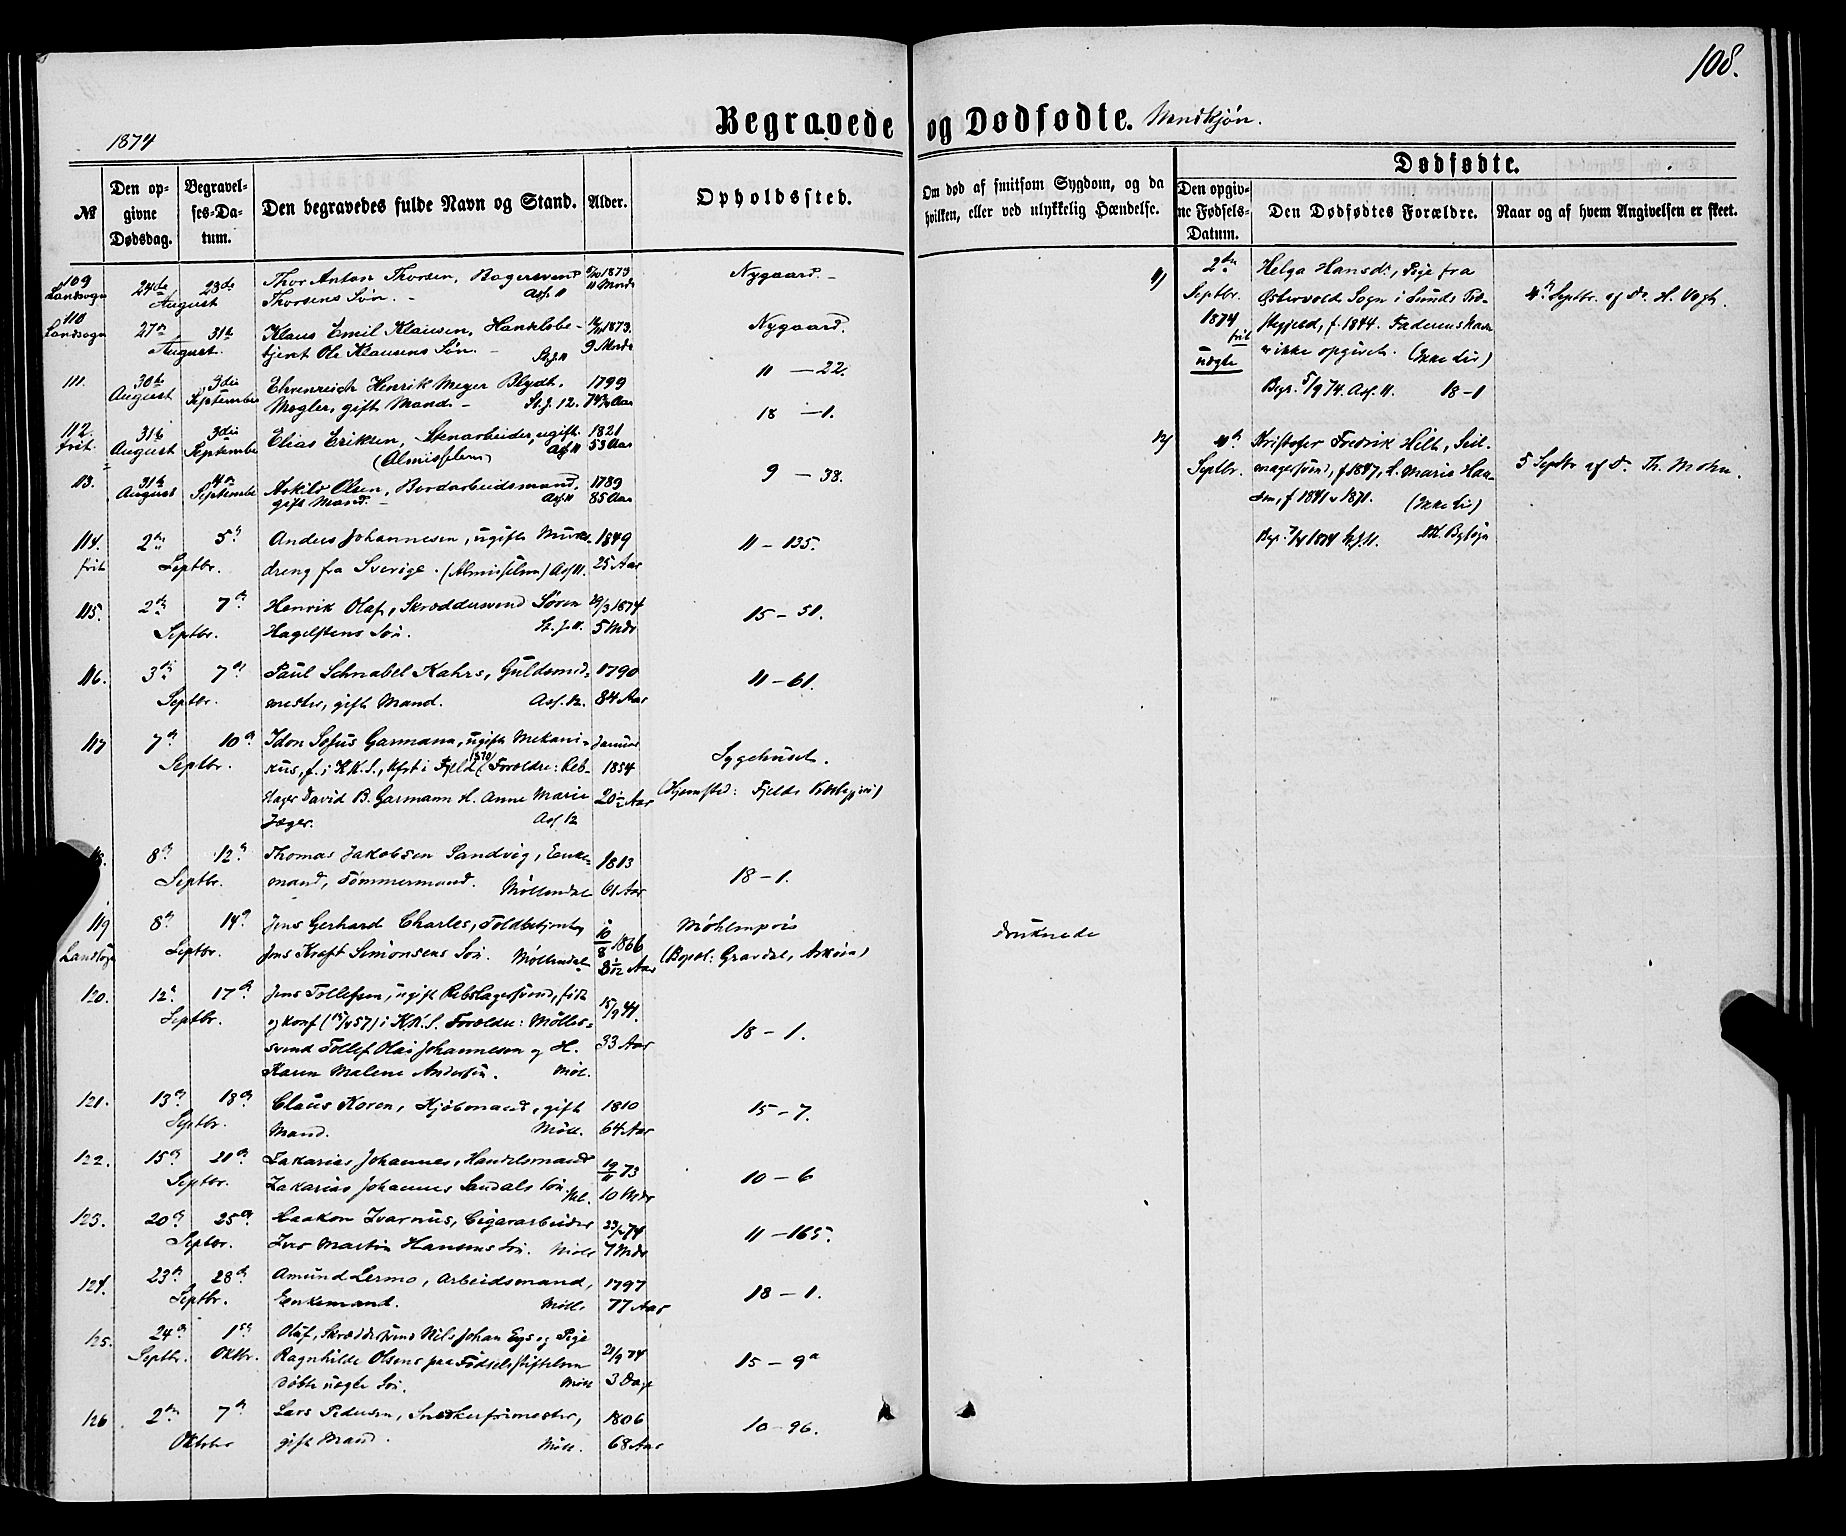 108.
1874
Begravede og Dødfødte. Mandkjøn.
№
Den opgivne Dødsdag.
Begravelses-Datum.
Den begravedes fulde Navn og Stand.
Alder.
Opholdssted.
Om død af smitsom Sygdom, og da hvilken, eller ved ulykkelig Hændelse.
Dødfødte.
Den opgivne Fødsels-Datum.
Den Dødfødtes Forældre.
Naar og af hvem Angivelsen er skeet.
109 24de 28de Thor Anton Thorsen, Bagersvend 1873 Nygaard.
Landsogn August Thorsens Søn. Asf. 11 11 Mndr
110 27de 31te Klaus Emil Klausen, Handelsbe- 1873 Nygaard.
Landsogn August. tjent Ole Klausens Søn. St. J. 11 9 Mndr
111. 30te 3die Ehrenreich Henrik Meyer Blydt, 1799 11 – 22.
August September Mægler, gift Mand. St. J. 12. Aar
112. 31te 3die Elias Eriksen, Stenarbeider, ugift. 1821 18 – 1.
frit. August September (Almisselem) Asf 11 53 Aar
113. 31te 4de Askild Olsen, Bordarbeidsmand, 1789 9 – 38.
August September gift Mand. Asf 11 85 Aar
114. 2den 5te Anders Johannesen, ugift Murer- 1849 11 – 135.
frit Septbr. dreng fra Sverige. (Almisselem) Asf 11. 25 Aar
115. 2den 7de Henrik Olaf, Skræddersvend Søren 29/3 1874 15 – 51.
Septbr. Hagelstens Søn. St. J. 11. 5 Mdr
116. 3die 7de Paul Schnabel Kahrs, Guldsmed- 1790 11 – 61.
Septbr. mester, gift Mand. Asf. 12. 84 Aar
117 7de 10de Idon Sofus Garmann, ugift Mekani- Januar Sygehuset.
Septbr. kus, f. i K.K.S., kfrt i Fjeld 1870 (Forældre: Reb- 1854
slager David B. Garmann H. Anne Marie 20 ½ Aar (Hjemsted: Fjelds Præstegjeld)
Jæger. Asf. 12
118. 8de 12te Thomas Jakobsen Sandvig, Enke- 1813 18 – 1.
Septbr. mand, Tømmermand. Møllendal 61 Aar
119 8de 14de Jens Gerhard Charles, Toldbetjent 10/8 1866 Møhlenpris druknede
Landsogn Septbr. Jens Kraft Simonsens Søn. Møllendal 8 1/12 Aar (Bopæl: Gravdal, Askøen)
120. 12te 17de Jens Tollefsen, ugift Rebslagersvend, født 15/9 41. 18 – 1.
Septbr. og konf ( 57) i K.K.S. Forældre: Møller- 33 Aar
svend Tollef Olai Johannesen og H.
Karen Malene Andersen. Møl.
121. 13de 18de Claus Koren, Kjøbmand, gift 1810 15 – 7.
Septbr. Mand. Møll. 64 Aar
122. 15de 21de Zakarias Johannes, Handelsmand 19/11 73 10 – 6
Septbr. Zakarias Johannes Sandals Søn Møl. 10 Mdr
123. 20de 25de Haakon Ivarnus, Cigararbeider 74 11 – 165.
Septbr. Iver Martin Hansens Søn. Møll 7 Mdr
124. 23de 28de Amund Lermo, Arbeidsmand, 1797 18 – 1.
Septbr. Enkemand. Møll. 77 Aar
125. 24de 1ste Oluf, Skræddersvend Nils Johan Eys og Pige 21/9 74 15 – 9a
Septbr. Oktbr. Ragnhilde Olsens paa Fødselsstiftelsen
døbte uægte Søn. Møll 3 Dage
126. 2den 7de Lars Pedersen, Snedkerformester, 1806 10 – 96.
Oktober gift Mand. Møll. 68 Aar
11) 2den Helga Hansdr, Pige fra
Septbr. Østervolds Sogn i Sunds Præ- 4de Septbr. af Dr. H. Vogt.
1874 stegjeld, f. 1844. Faderens Navn
frit er ikke opgivet. (Ikke Liv)
uægte
Begr. 5/9 74. Asf. 11. 18 – 1
12) 4de Kristofer Fredrik Hilt, Seil-
Septbr. magersvend, f 1847, H. Marie Han- 5 Septbr af Dr. Th. Mohn.
sen, f 1841 v 1871. (Ikke Liv)
Begr. 7/9 1874 St. J. 11.